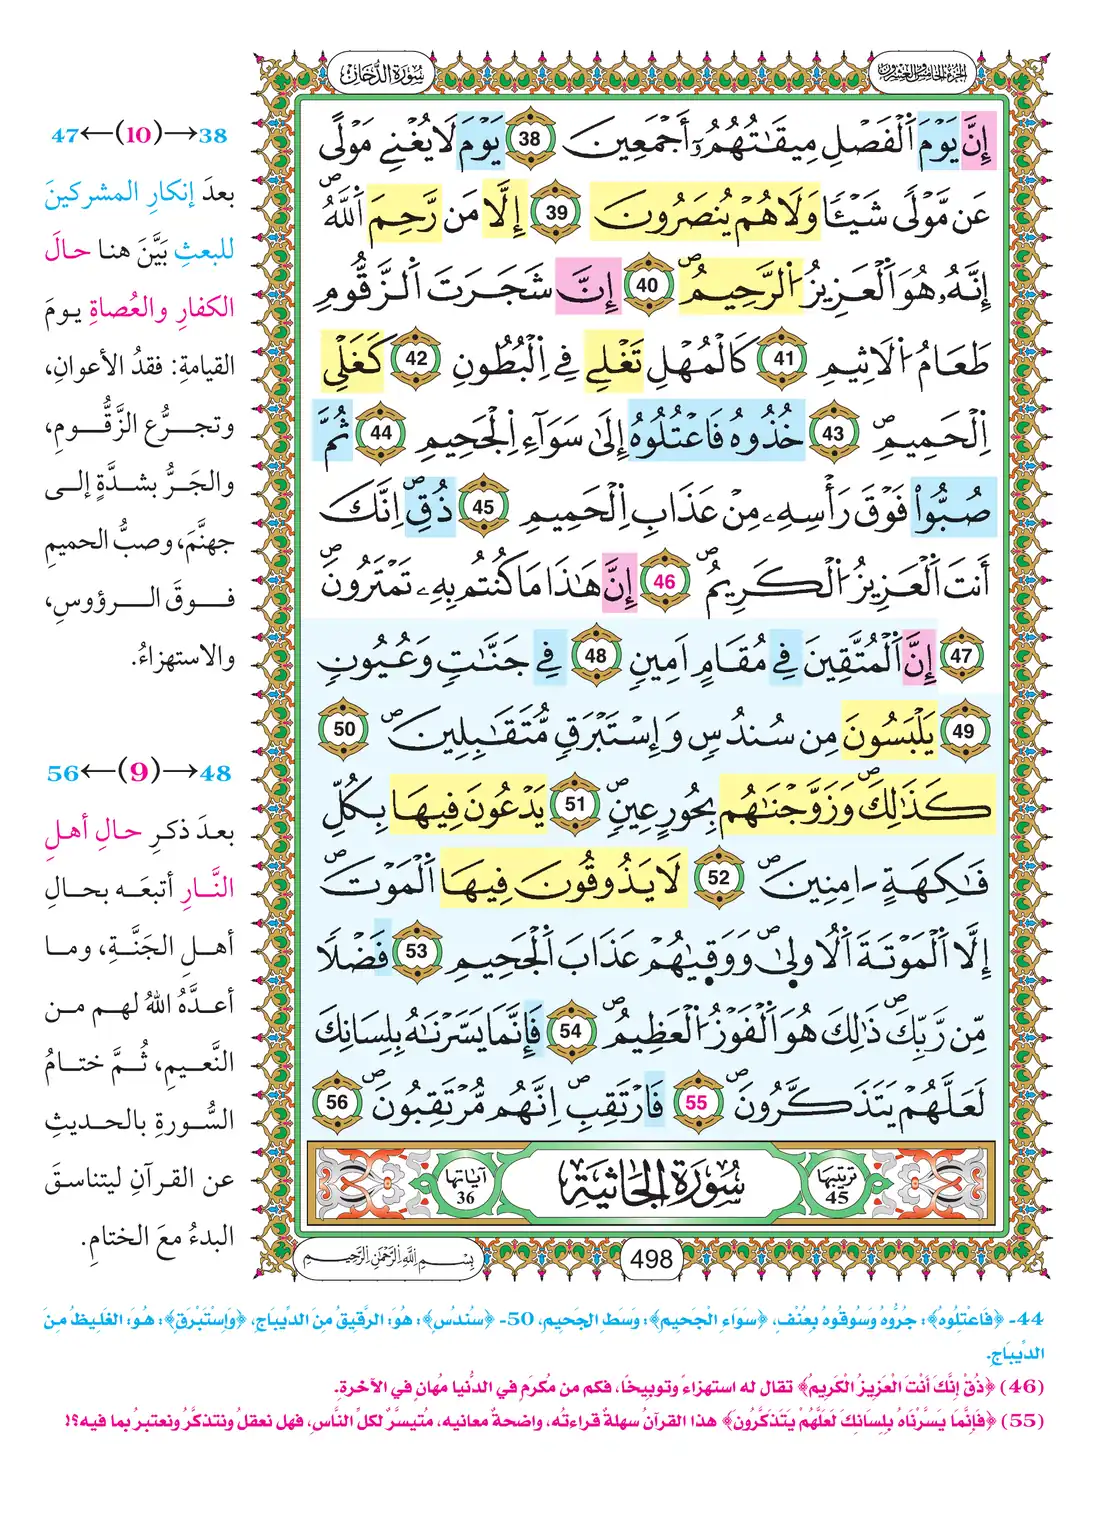 الجزء الخامس والعشرون
سورة الدخان
إِنَّ يَوْمَ اَ۬لْفَصْلِ مِيقَٰتُهُمُۥٓ أَجْمَعِينَ 38 يَوْمَ لَا يُغْنِے مَوْلًى
عَن مَّوْلٗى شَيْـٔٗا وَلَا هُمْ يُنصَرُونَ 39 إِلَّا مَن رَّحِمَ اَ۬للَّهُ
إِنَّهُۥ هُوَ اَ۬لْعَزِيزُ اُ۬لرَّحِيمُ 40 إِنَّ شَجَرَتَ اَ۬لزَّقُّومِ
طَعَامُ اُ۬لَاثِيمِ 41 كَالْمُهْلِ تَغْلِے فِے اِ۬لْبُطُونِ 42 كَغَلْيِ
اِ۬لْحَمِيمِ 43 خُذُوهُ فَاعْتُلُوهُ إِلَىٰ سَوَآءِ اِ۬لْجَحِيمِ 44 ثُمَّ
صُبُّواْ فَوْقَ رَأْسِهِۦ مِنْ عَذَابِ اِ۬لْحَمِيمِ 45 ذُقِ اِنَّكَ
أَنتَ اَ۬لْعَزِيزُ اُ۬لْكَرِيمُ 46 إِنَّ هَٰذَا مَا كُنتُم بِهِۦ تَمْتَرُونَ
47 إِنَّ اَ۬لْمُتَّقِينَ فِے مُقَامٍ اَمِينٖ 48 فِے جَنَّٰتٖ وَعُيُونٖ
49 يَلْبَسُونَ مِن سُندُسٖ وَإِسْتَبْرَقٖ مُّتَقَٰبِلِينَ 50
كَذَٰلِكَ وَزَوَّجْنَٰهُم بِحُورٍ عِينٖ 51 يَدْعُونَ فِيهَا بِكُلِّ
فَٰكِهَةٍ ـ امِنِينَ 52 لَا يَذُوقُونَ فِيهَا اَ۬لْمَوْتَ
إِلَّا اَ۬لْمَوْتَةَ اَ۬لُاولَىٰ وَوَقَىٰهُمْ عَذَابَ اَ۬لْجَحِيمِ 53 فَضْلٗا
مِّن رَّبِّكَ ذَٰلِكَ هُوَ اَ۬لْفَوْزُ اُ۬لْعَظِيمُ 54 فَإِنَّمَا يَسَّرْنَٰهُ بِلِسَانِكَ
لَعَلَّهُمْ يَتَذَكَّرُونَ 55 فَارْتَقِبِ اِنَّهُم مُّرْتَقِبُونَ 56
ترتيبها 45
سورة الجاثية
آياتها 36
498
بسم الله الرحمن الرحيم
47←(10)→38
بعدَ إنكارِ المشركينَ
للبعثِ بيَّنَ هنا حالَ
الكفارِ والعُصاةِ يومَ
القيامةِ: فقدُ الأعوانِ،
وتجرُّع الزَّقُّومِ،
والجَرُّ بشدَّةٍ إلى
جهنَّمَ، وصبُّ الحميمِ
فوقَ الرؤوسِ،
والاستهزاءُ.
56←(9)→48
بعدَ ذكرِ حالِ أهلِ
النَّارِ أتبعَه بحالِ
أهلِ الجَنَّةِ، وما
أعدَّهُ اللهُ لهم من
النَّعيمِ، ثُمَّ ختامُ
السُّورةِ بالحديثِ
عن القرآنِ ليتناسقَ
البدءُ معَ الختامِ.
44- ﴿فَاعْتِلُوهُ﴾: جُرُّوهُ وَسُوقُوهُ بِعُنْفٍ، ﴿سَوَاءِ الْجَحِيمِ﴾: وَسَطِ الجَحِيمِ، 50- ﴿سُندُسٍ﴾: هُوَ: الرَّقِيقُ مِنَ الدِّيبَاجِ، ﴿وَإِسْتَبْرَقٍ﴾: هُوَ: الغَلِيظُ مِنَ
الدِّيبَاجِ.
(46) ﴿ذُقْ إِنَّكَ أَنْتَ الْعَزِيزُ الْكَرِيمُ﴾ تقال له استهزاءً وتوبيخًا، فكم من مُكرَمٍ في الدُّنيا مُهانٍ في الآخرة.
(55) ﴿فَإِنَّمَا يَسَّرْنَاهُ بِلِسَانِكَ لَعَلَّهُمْ يَتَذَكَّرُونَ﴾ هذا القرآنُ سهلةٌ قراءتُه، واضحةٌ معانيه، مُتيسرٌ لكلِّ النَّاسِ، فهل نعقلُ ونتذكَّرُ ونعتبرُ بما فيه؟!